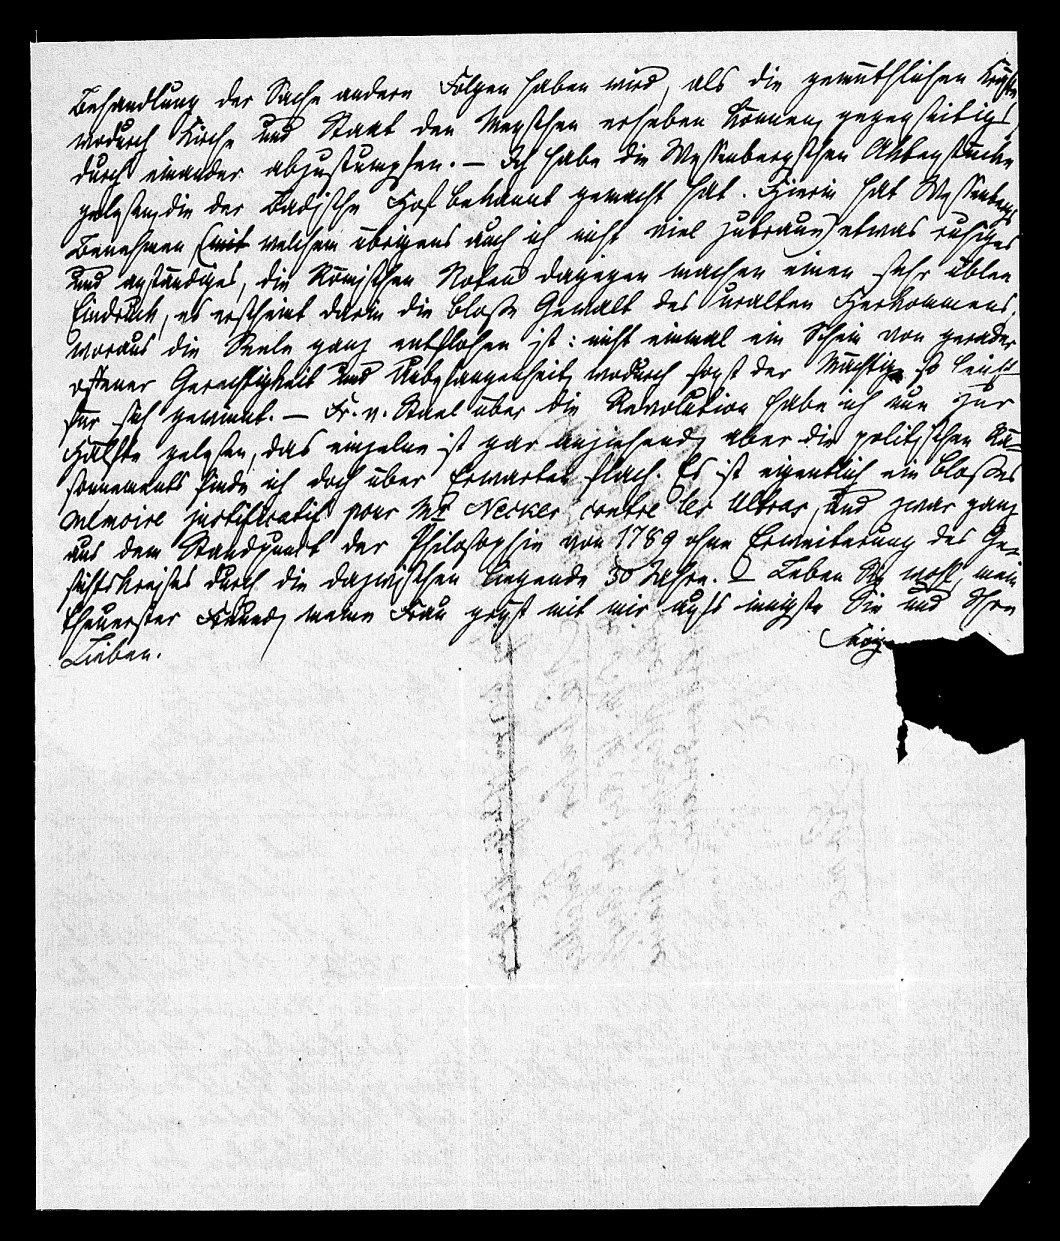 Behandlung der Sache andere Folgen haben wird, als die gemüthlichen Kräfte
wodurch Kirche und Staat den Menschen erheben können, gegenseitig
durch einander abzustumpfen. — Ich habe die Wessenbergschen Aktenstücke
gelesen, die der Badische Hof bekannt gemacht hat. Hierin hat Wessenbergs
Benehmen (mit welchem übrigens auch ich nicht viel zutraue) etwas ruhiges
und anständiges, die Römischen Noten dagegen machen einen sehr üblen
Eindruck, es erscheint darin die bloße Gewalt des uralten Herkommens,
woraus die Seele ganz entflohen ist: nicht einmal ein Schein von gerader
offener Gerechtigkeit und Unbefangenheit, wodurch sonst der Mächtige so leicht
für sich gewinnt. — Fr. v. Stael über die Revolution habe ich nun zur
Hälfte gelesen, das einzelne ist gar anziehend, aber die politischen Rä-
sonnements finde ich doch über Erwarten flach. Es ist eigentlich ein bloßes
Memoire justificatif pour Mr Necker contre les Ultras, und zwar ganz
aus dem Standpunct der Philosophie von 1789 ohne Erweiterung des Ge-
sichtskreises durch die dazwischen liegende 30 Jahre. — Leben Sie wohl, mein
theuerster Freund, meine Frau grüßt mit mir aufs innigste Sie und Ihre
Lieben.